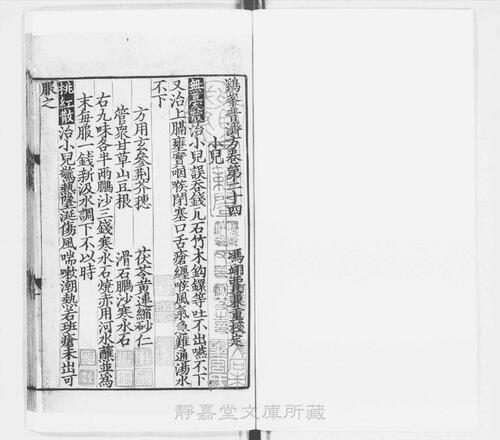 鷄峯普濟方卷第二十四
馮翊賈兼重校定
小兒
無憂散治小兒誤吞錢瓦石竹木鈎鐶等吐不出嚥不下
又治上膈壅實咽喉閉塞口舌瘡纏喉風氣急難通湯水
不下
方用玄參荆芥穗 茯苓黃連縮砂仁
管衆甘草山豆根 滑石鵬沙寒水石
右九味各半兩鵬沙三錢寒水石燒赤用河水蘸並爲
末每服一錢新汲水調下不以時
排紅散治小兒驚熱墜涎傷風喘嗽潮熱若班瘡未出可
服之
靜嘉堂文庫所藏